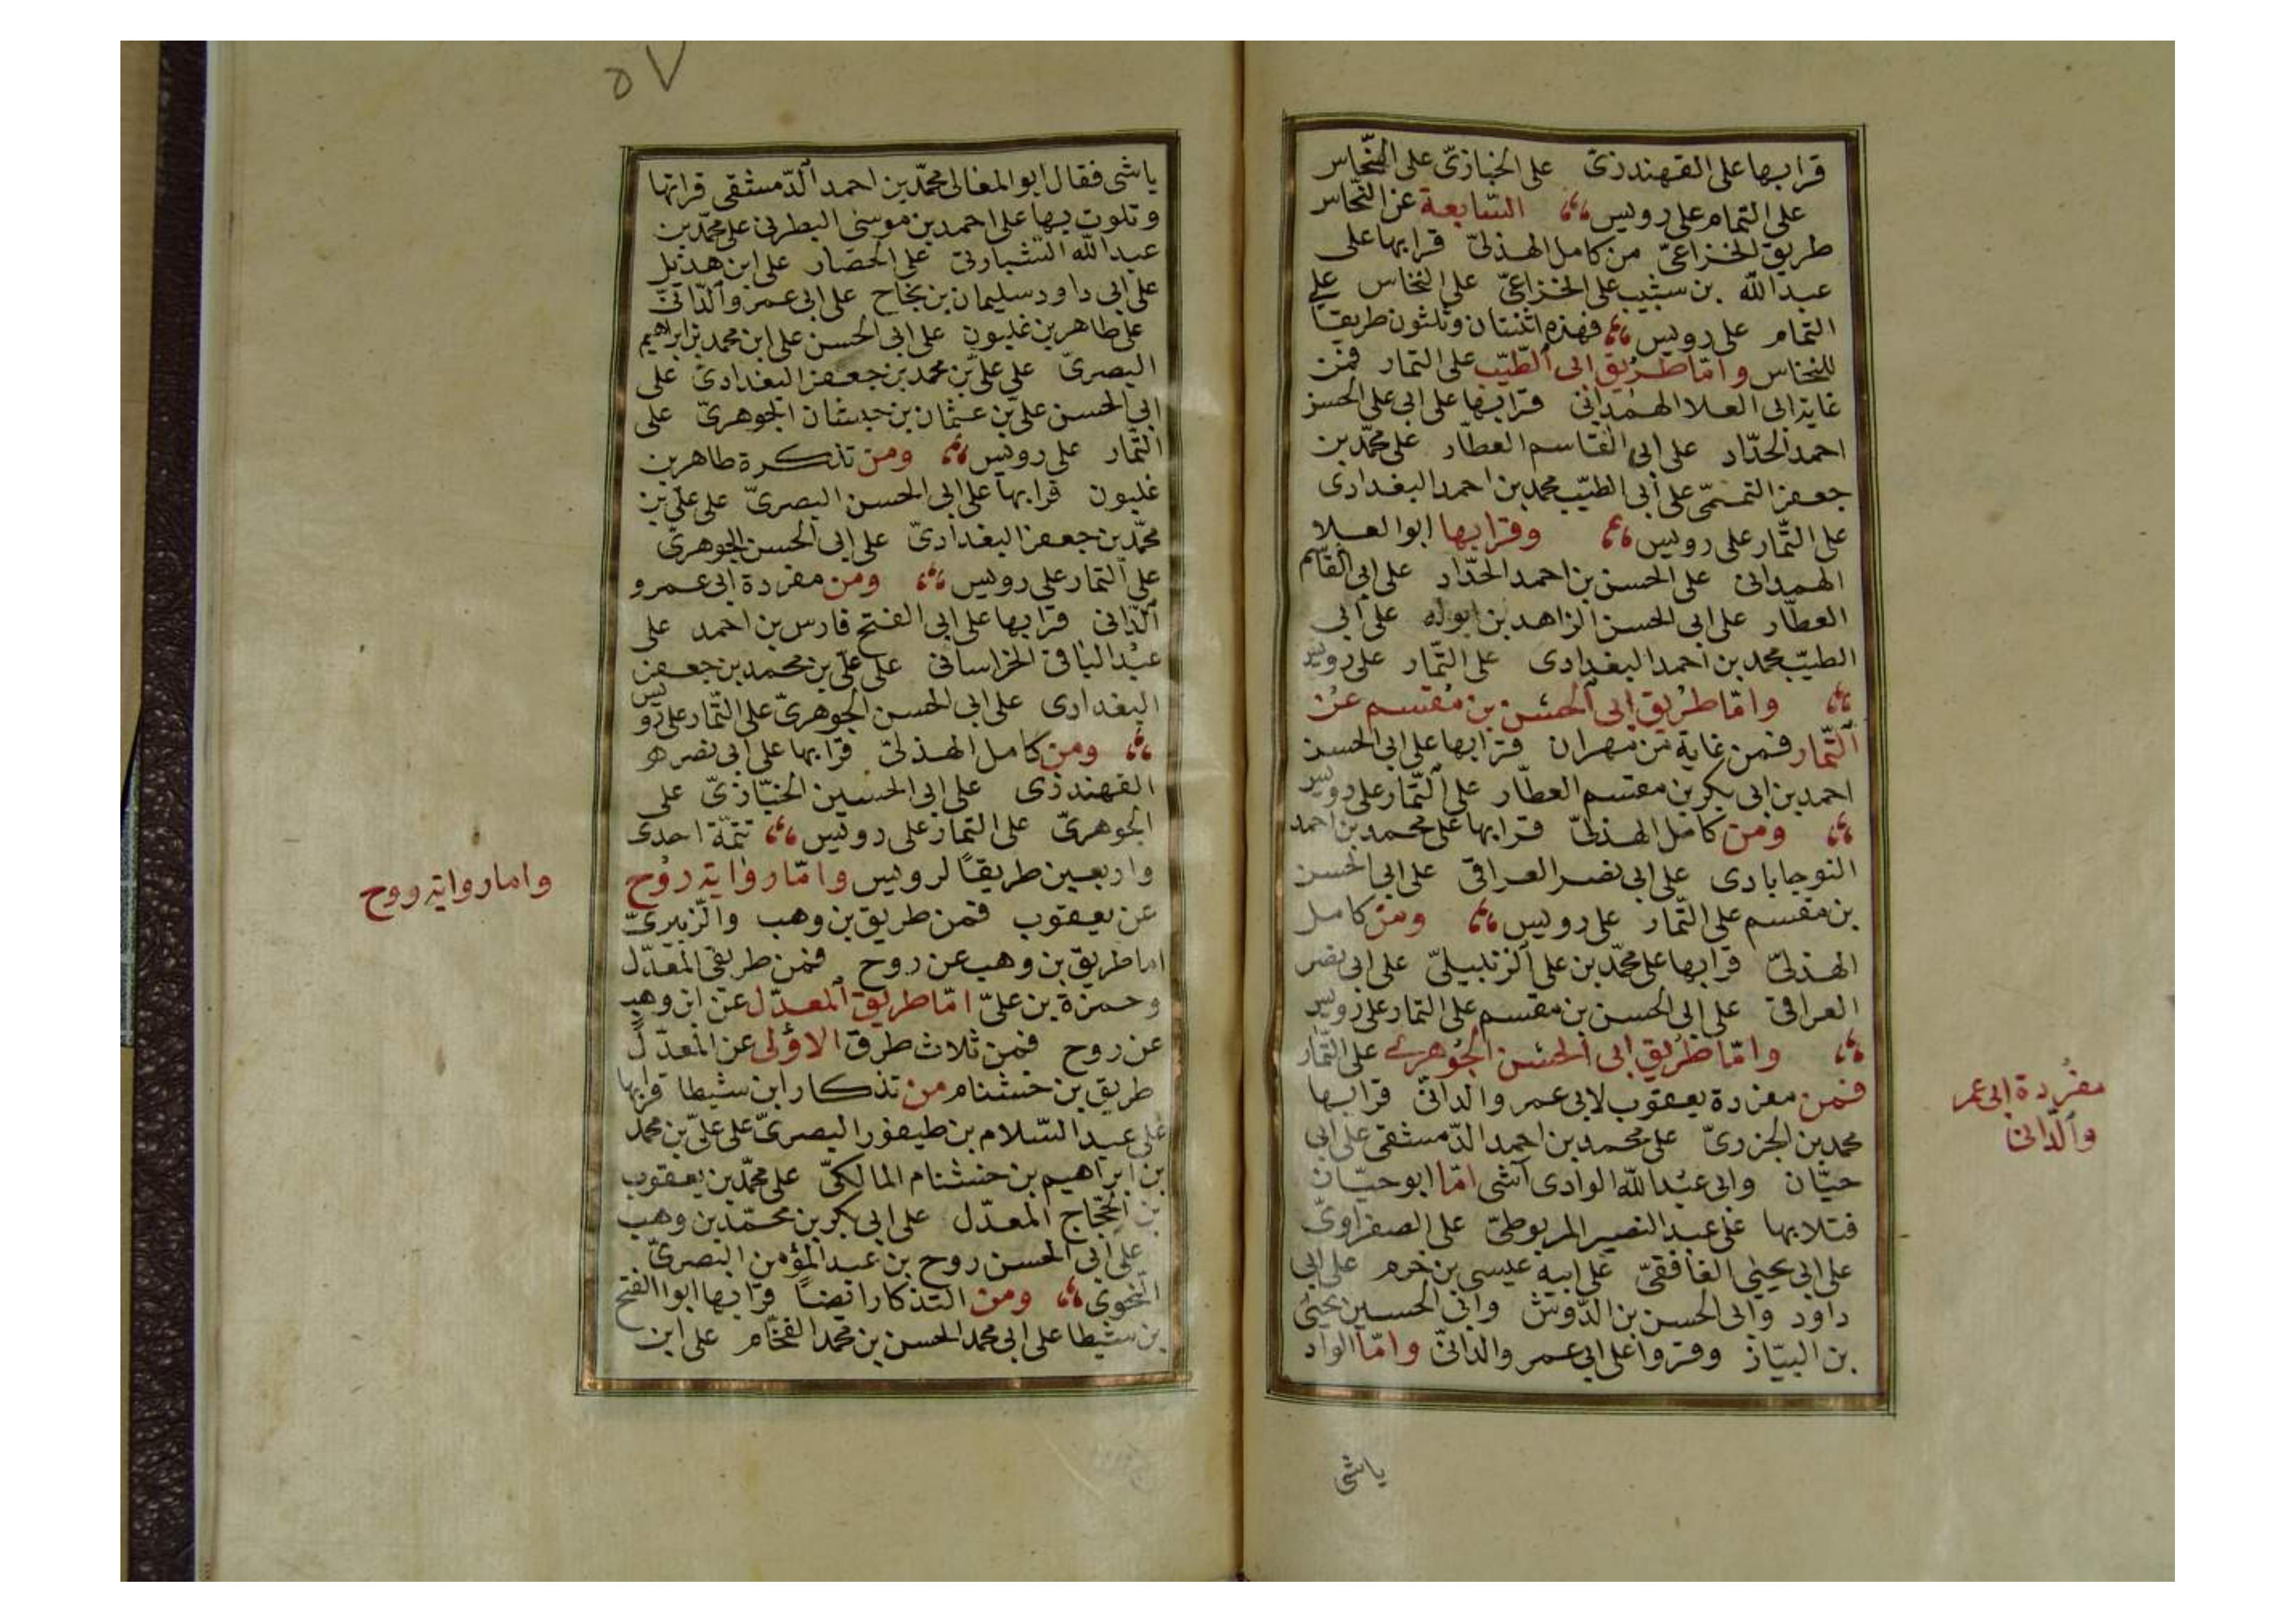 قرا بها على القهندزى على الخبازىّ على النّخاس
على التمام على رويس السّابعة عن النّخاس
طريق الخزاعىّ من كامل الهذلىّ قرا بها على
عبد الله بن شبيب على الخزاعىّ على النخاس على
التمام على رويس فهذه اثنتان وثلثون طريقا
للنخاس وامّا طريق ابى الطّيّب على التمار فمن
غاية ابى العلا الهمدانى قرا بها على ابى على الحسن
احمد الحدّاد على ابى القاسم العطّار على محمّد بن
جعفر التميمىّ على ابى الطيّب محمد بن احمد البغدادى
على التّمار على رويس وقرا بها ابو العلا
الهمدانى على الحسن بن احمد الحدّاد على ابى القاسم
العطّار على ابى الحسن الزاهد بن ابوله على ابى
الطيّب محمد بن احمد البغدادى على التّمار على رويس
وامّا طريق ابى الحسن بن مقسم عن
التّمار فمن غاية بن مهران قرا بها على ابى الحسن
احمد بن ابى بكر بن مقسم العطّار على التّمار على رويس
ومن كامل الهذلىّ قرا بها على محمد بن احمد
النوجابادى على ابى نصر العراقى على ابى الحسن
بن مقسم على التّمار على رويس ومن كامل
الهذلىّ قرا بها على محمّد بن على الزنبيلىّ على ابى نصر
العراقى على ابى الحسن بن مقسم على التمار على رويس
وامّا طريق ابى الحسن الجوهرى على التّمار
فمن مفردة يعقوب لابى عمرو الدانىّ قرا بها
محمد بن الجزرىّ على محمد بن احمد الدّمشقى على ابى
حيّان وابى عبد الله الوادى آشى امّا ابو حيّان
فتلا بها على عبد النصير المربوطىّ على الصفراوىّ
على ابى يحيى الغافقىّ على ابيه عيسى بن حزم على ابى
داود وابى الحسن بن الدّوش وابى الحسين يحيى
بن البيّاز وقروا على ابى عمرو الدانىّ وامّا الواد
ياشى
مفردة ابى عمر
و الدّانى
٥٧
ياشى فقال ابو المعالى محمّد بن احمد الدّمشقى قراتها
وتلوت بها على احمد بن موسى البطرنى على محمّد بن
عبد الله الشبارتى على الحصار على ابن هذيل
على ابى داود سليمان بن نجاح على ابى عمرو الدّانىّ
على طاهر بن غلبون على ابى الحسن على ابن محمد بن ابراهيم
البصرىّ على علىّ بن محمد بن جعفر البغدادىّ على
ابى الحسن علىّ بن عثمان بن حبشان الجوهرىّ على
التّمار على رويس ومن تذكرة طاهر بن
غلبون قرا بها على ابى الحسن البصرىّ على علىّ بن
محمّد بن جعفر البغدادىّ على ابى الحسن الجوهرىّ
على التمار على رويس ومن مفردة ابى عمرو
الدّانى قرا بها على ابى الفتح فارس بن احمد على
عبد الباقى الخراسانى على علىّ بن محمد بن جعفر
البغدادى على ابى الحسن الجوهرىّ على التّمار على رويس
ومن كامل الهذلىّ قرا بها على ابى نصر هو
القهندزى على ابى الحسين الخبّازىّ على
الجوهرىّ على التمار على رويس تتمّة احدى
واربعين طريقًا لرويس وامّا رواية روح
عن يعقوب فمن طريق بن وهب والزّبيرىّ
اما طريق بن وهب عن روح فمن طريقى المعدّل
وحمزة بن علىّ امّا طريق المعدّل عن ابن وهب
عن روح فمن ثلاث طرق الاولى عن المعدّل
طريق بن خشنام من تذكار ابن شيطا قرا بها
على عبد السّلام بن طيفور البصرىّ على علىّ بن محمد
بن ابراهيم بن خشنام المالكىّ على محمّد بن يعقوب
بن الحجّاج المعدّل على ابى بكر بن محمّد بن وهب
على ابى الحسن روح بن عبد المؤمن البصرىّ
النحوى ومن التذكار ايضاً قرا بها ابو الفتح
بن شيطا على ابى محمد الحسن بن محمد الفحّام على ابن
واما رواية روح